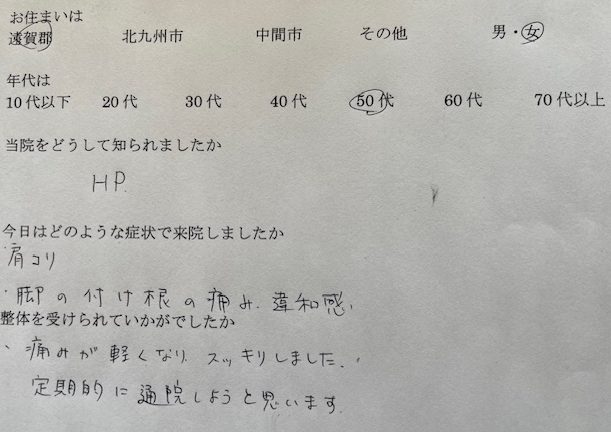 お住まいは
遠賀郡 北九州市 中間市 その他 男・女
年代は
10代以下 20代 30代 40代 50代 60代 70代以上
当院をどうして知られましたか
HP.
今日はどのような症状で来院しましたか
・肩コリ
・脚の付け根の痛み、違和感、
整体を受けられていかがでしたか
・痛みが軽くなり、スッキリしました。
定期的に通院しようと思います。